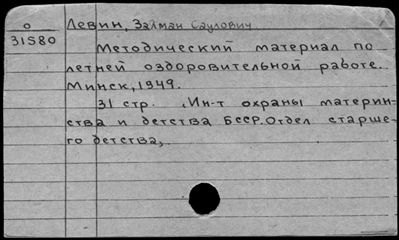 О
31580
Левин, Залман Саулович
Методический материал по
летней оздоровительной работе.
Минск, 1949.
31 стр. (Ин-т охраны материн-
ства и детства БССР. Отдел старше-
го детства,